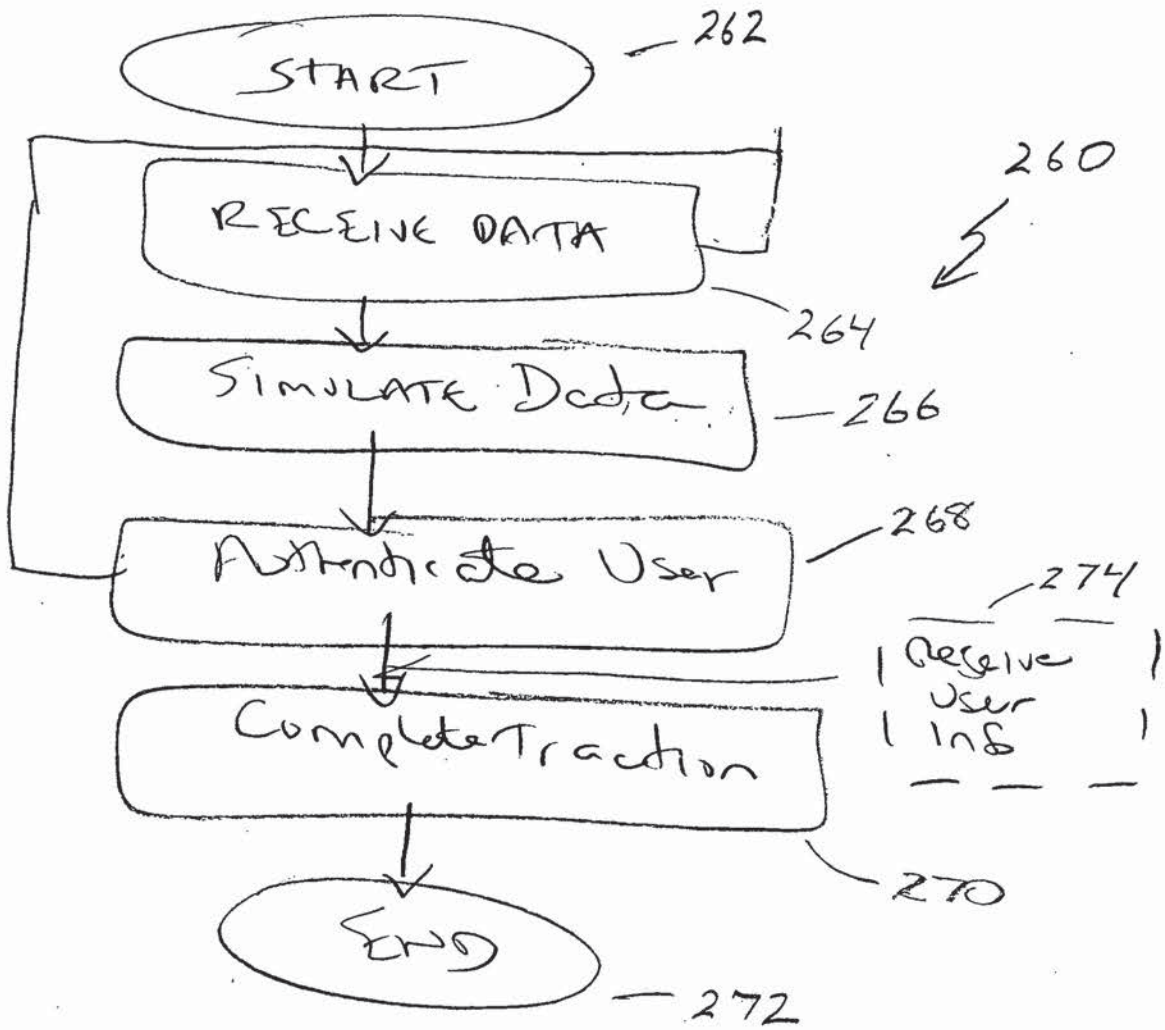 262
START
260
RECEIVE DATA
264
SIMULATE Data
266
268
Authenticate User
274
Receive
User
Info
Complete Traction
270
END
272